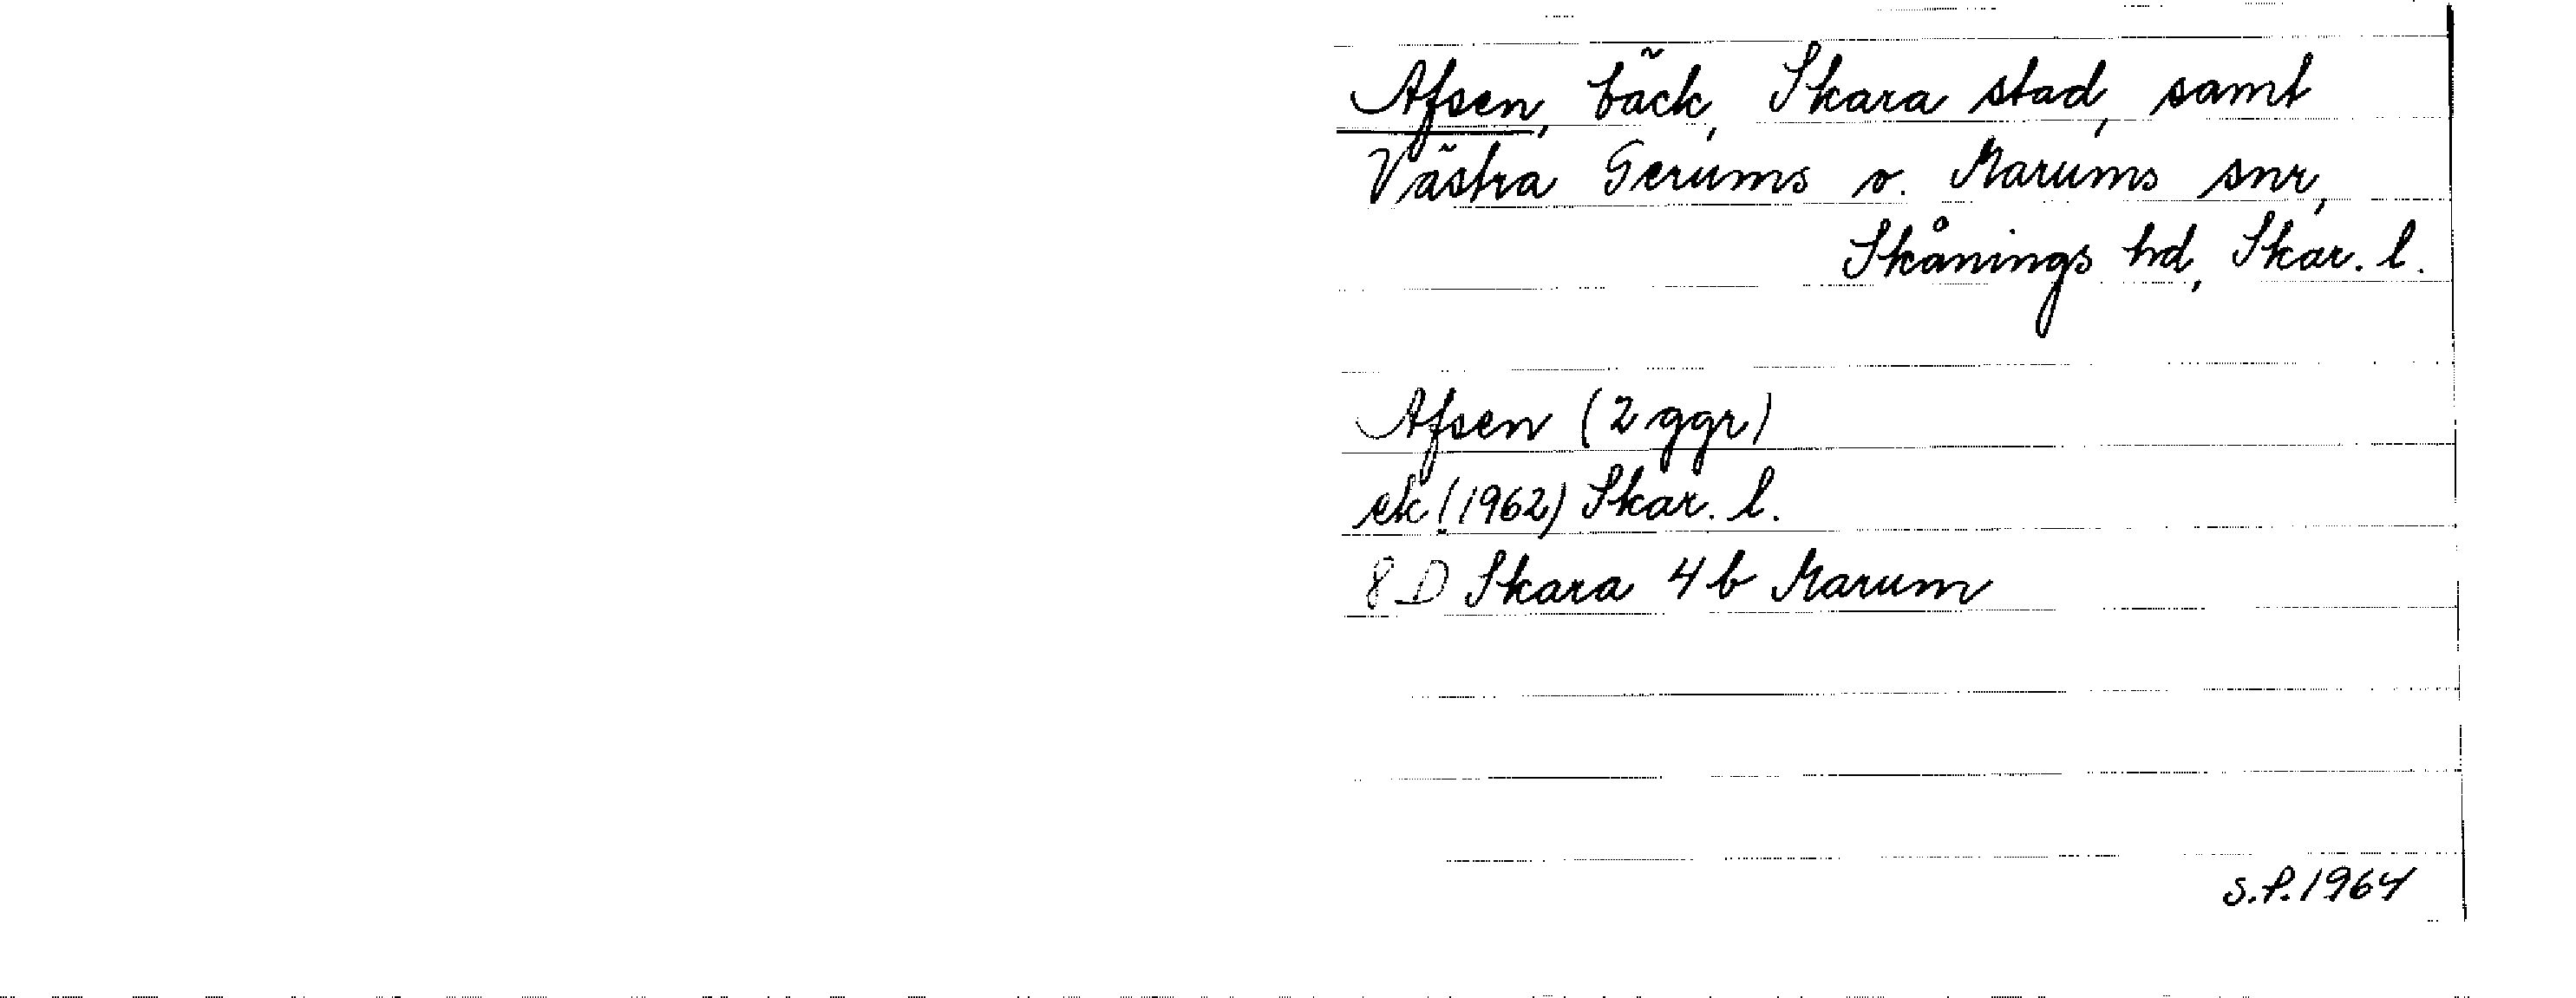 Afsen, bäck, Skara stad, samt
Västra Gerums o. Marums snr,
Skånings hd, Skar. l.
Afsen (2 ggr)
ek (1962) Skar. l.
8 D Skara 4 b Marum
S.P. 1964